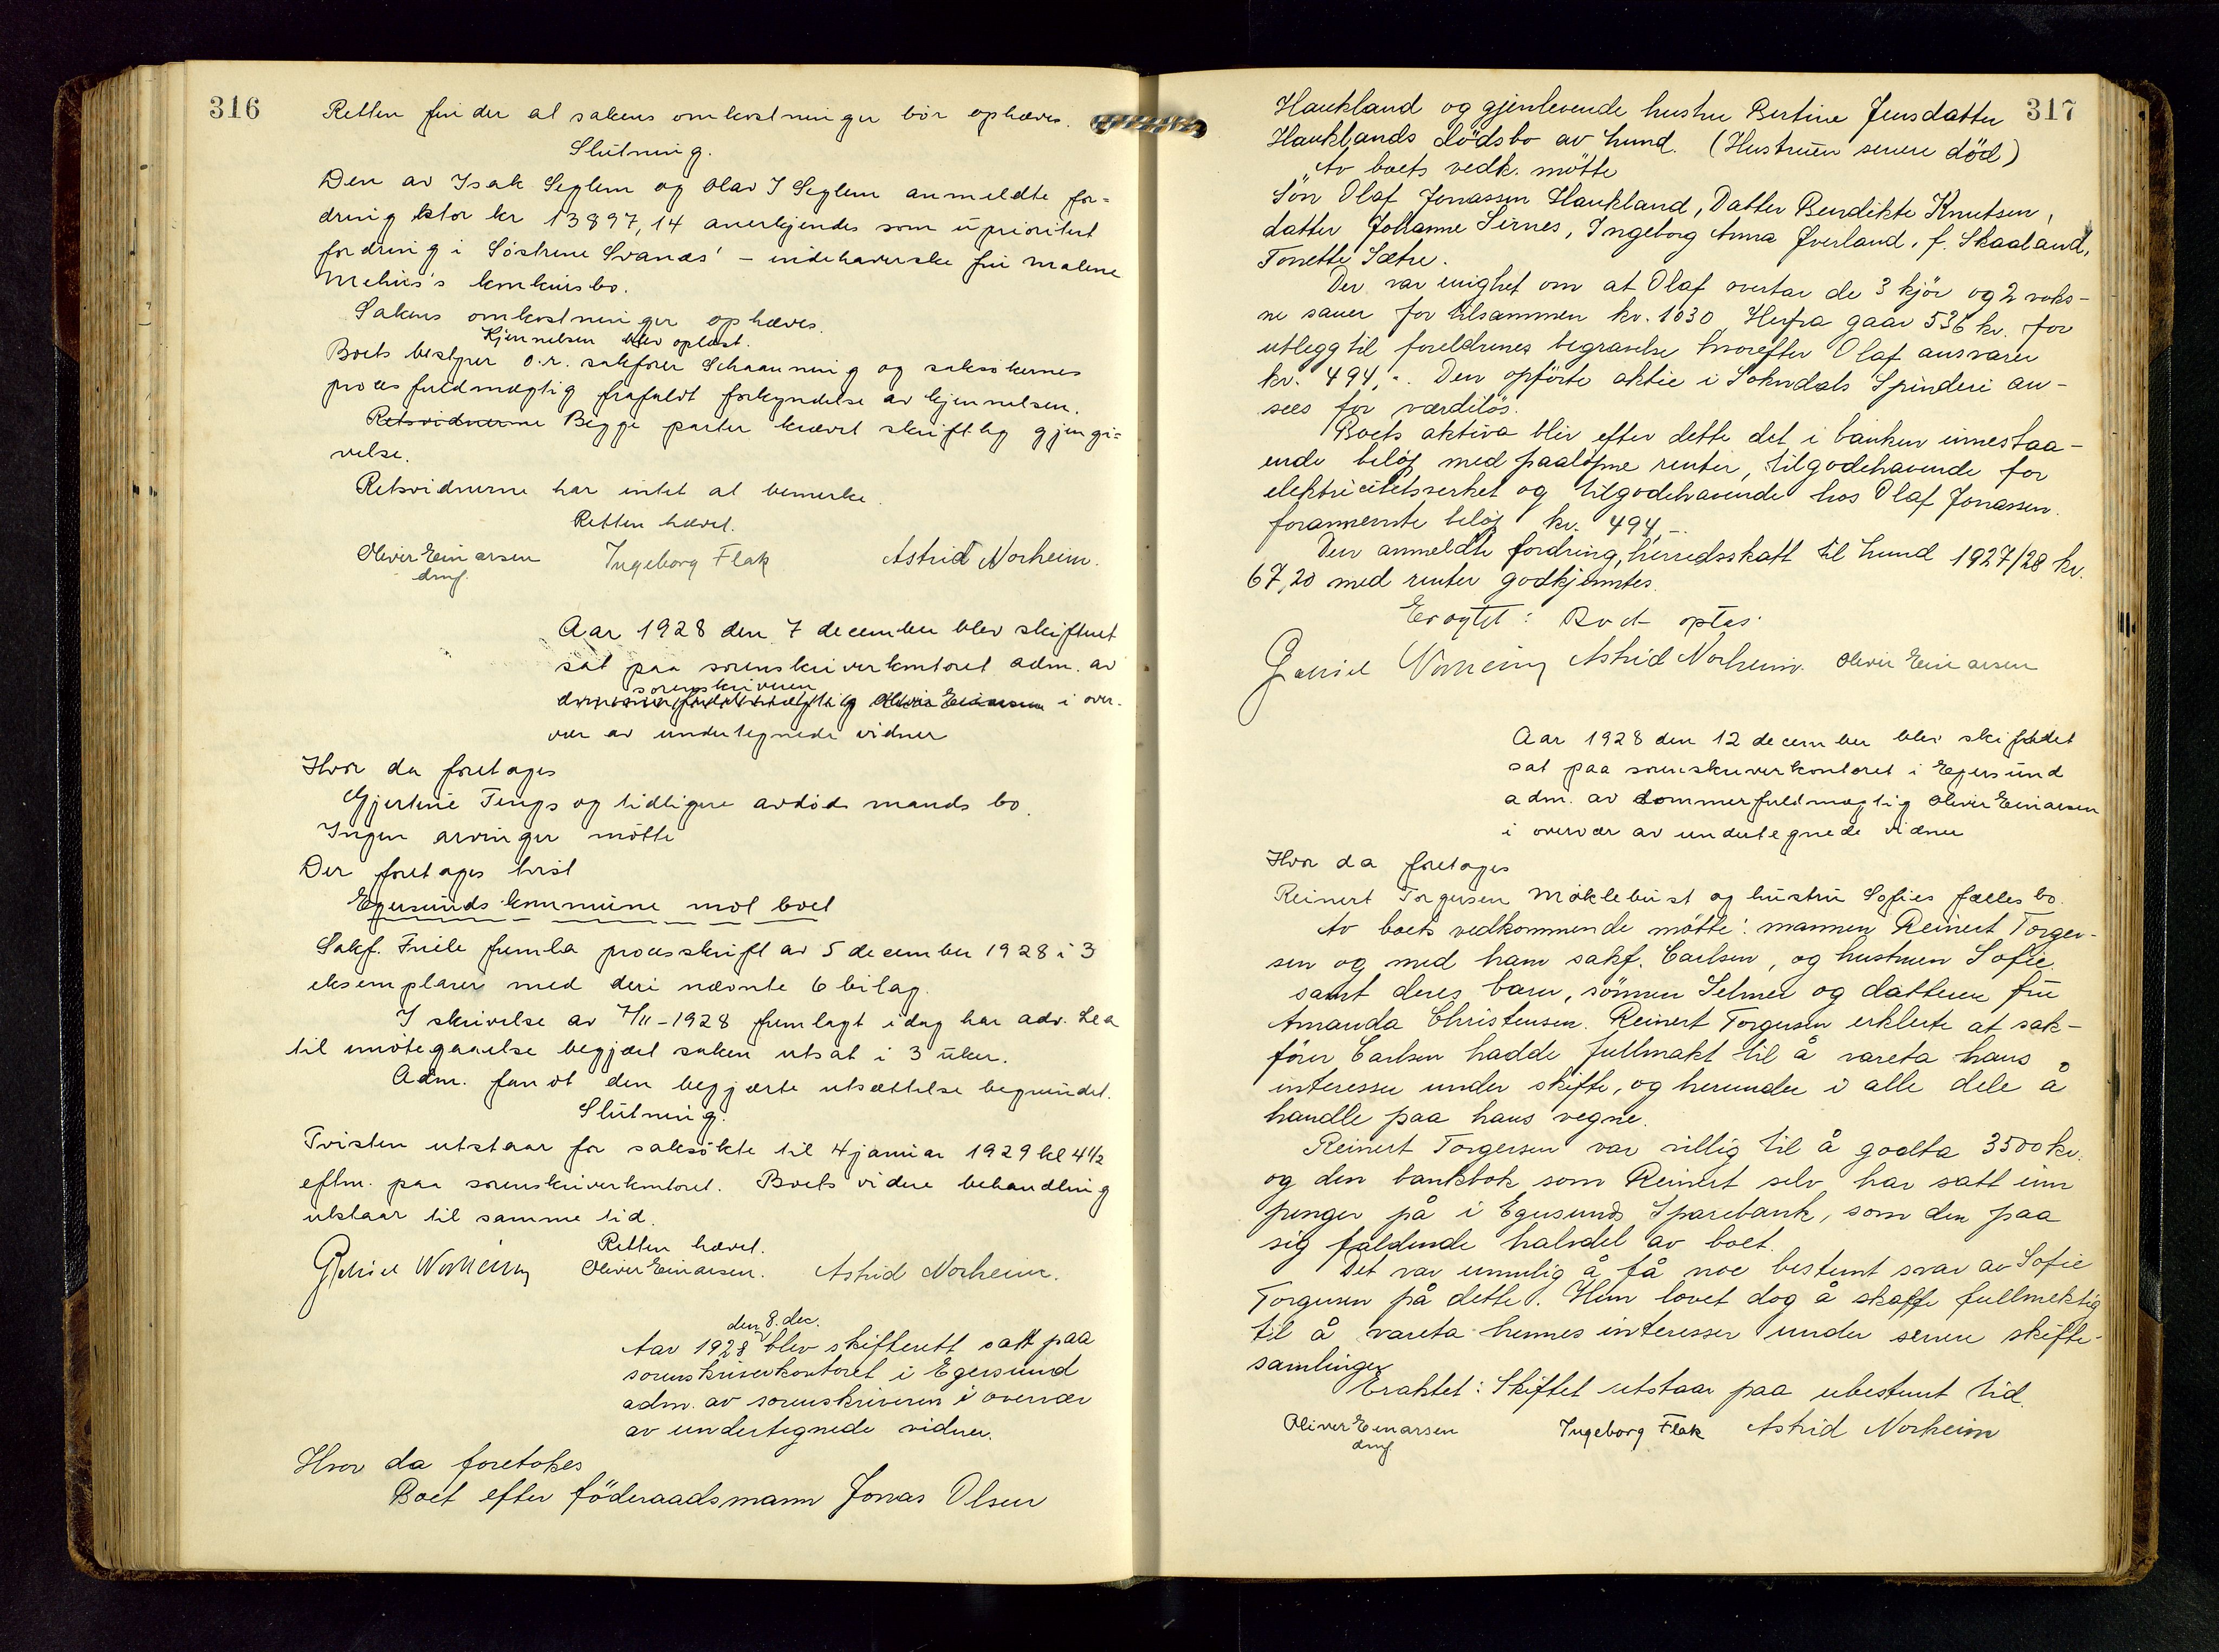 316
Retten finder at sakens omkostninger bör ophæves.
Slutning.
Den av Isak Seglem og Olav I Seglem anmeldte for=
dring stor kr 13897,14 anerkjendes som uprioritert
fordring i Söstrene Svanæs' - indehaverske fru Malene
Mehus's konkursbo.
Sakens omkostninger ophæves.
Kjennelsen blev oplæst.
Boets bestyrer o.r. sakförer Schaanning og saksökernes
procesfuldmægtig frafaldt forkyndelse av kjennelsen.
Retsvidnerne Begge parter krævet skriftlig gjengi=
velse.
Retsvidnerne har intet at bemerke.
Retten hævet.
Oliver Einarsen Ingeborg Flak Astrid Norheim.
dmf.
Aar 1928 den 7 december blev skifteret
sat paa sorenskriverkontoret adm. av
sorenskriveren
dommerfuldmægtig Oliver Einarsen i over-
vær av undertegnede vidner
Hvor da foretoges
Gjertine Tengs og tidligere avdöde mands bo.
Ingen arvinger mötte
Der foretoges tvist
Egersunds kommune mot boet
Sakf. Friele fremla processkrift av 5 december 1928 i 3
eksemplarer med deri nævnte 6 bilag.
I skrivelse av 7/11-1928 fremlagt idag har adv. Lea
til imötegaaelse begjært saken utsat i 3 uker.
Adm. fandt den begjærte utsættelse begrundet.
Slutning.
Tvisten utstaar for saksökte til 4 januar 1929 kl 4 1/2
eftm. paa sorenskriverkontoret. Boets videre behandling
utstaar til samme tid.
Retten hævet.
Oliver Einarsen. Astrid Norheim.
den 8. dec.
Aar 1928 blev skifterett satt paa
sorenskriverkontoret i Egersund
adm. av sorenskriveren i overvær
av undertegnede vidner.
Hvor da foretokes
Boet efter föderaadsmann Jonas Olsen
317
Haukland og gjenlevende hustru Bertine Jensdatter
Hauklands dödsbo av Lund. (Hustruen senere död)
Av boets vedk. mötte
Sön Olaf Jonassen Haukland, Datter Bendikte Knutsen,
datter Johanne Sirnes, Ingeborg Anna Øverland, f. Skaaland,
Tonette Sætre.
Der var enighet om at Olaf overtar de 3 kjör og 2 voks-
ne sauer for tilsammen kr. 1030. Herfra gaar 536 kr. for
utlegg til foreldrenes begravelse hvorefter Olaf ansvarer
kr. 494,-. Den opförte aktie i Sokndals Spinderi an-
sees for værdilös.
Boets aktiva blir efter dette det i banken innestaa-
ende belöp med paalöpne renter, tilgodehavende for
elektricitetsverket og tilgodehavende hos Olaf Jonassen.
forannevnte belöp kr. 494,-
Den anmeldte fordring, herredsskatt til Lund 1927/28 kr.
67,20 med renter godkjenntes.
Eragtet: Bo d optas.
Astrid Norheim. Oliver Einarsen
Aar 1928 den 12 december blev skifteret
sat paa sorenskriverkontoret i Egersund
adm. av dommerfuldmægtig Oliver Einarsen
i overvær av undertegnede vidner
Hvor da foretoges
Reinert Torgersen Möklebust og hustru Sofies fælles bo.
Av boets vedkommende mötte: mannen Reinert Torger-
sen og med ham sakf. Carlsen, og hustruen Sofie.
samt deres barn, sönnen Selmer og datteren fru
Amanda Christensen. Reinert Torgersen erklerte at sak-
förer Carlsen hadde fullmakt til å vareta hans
interesser under skifte, og herunder i alle dele å
handle paa hans vegne.
Reinert Torgersen var villig til å godta 3500 kr.
og den bankbok som Reinert selv har satt inn
penger på i Egersunds Sparebank, som den paa
sig faldende halvdel av boet.
Det var umulig å få noe bestemt svar av Sofie
Torgersen på dette. Hun lovet dog å skaffe fullmektig
til å vareta hennes interesser under senere skifte-
samlinger
Eraktet: Skiftet utstaar paa ubestemt tid.
Oliver Einarsen Ingeborg Flak Astrid Norheim
dmf